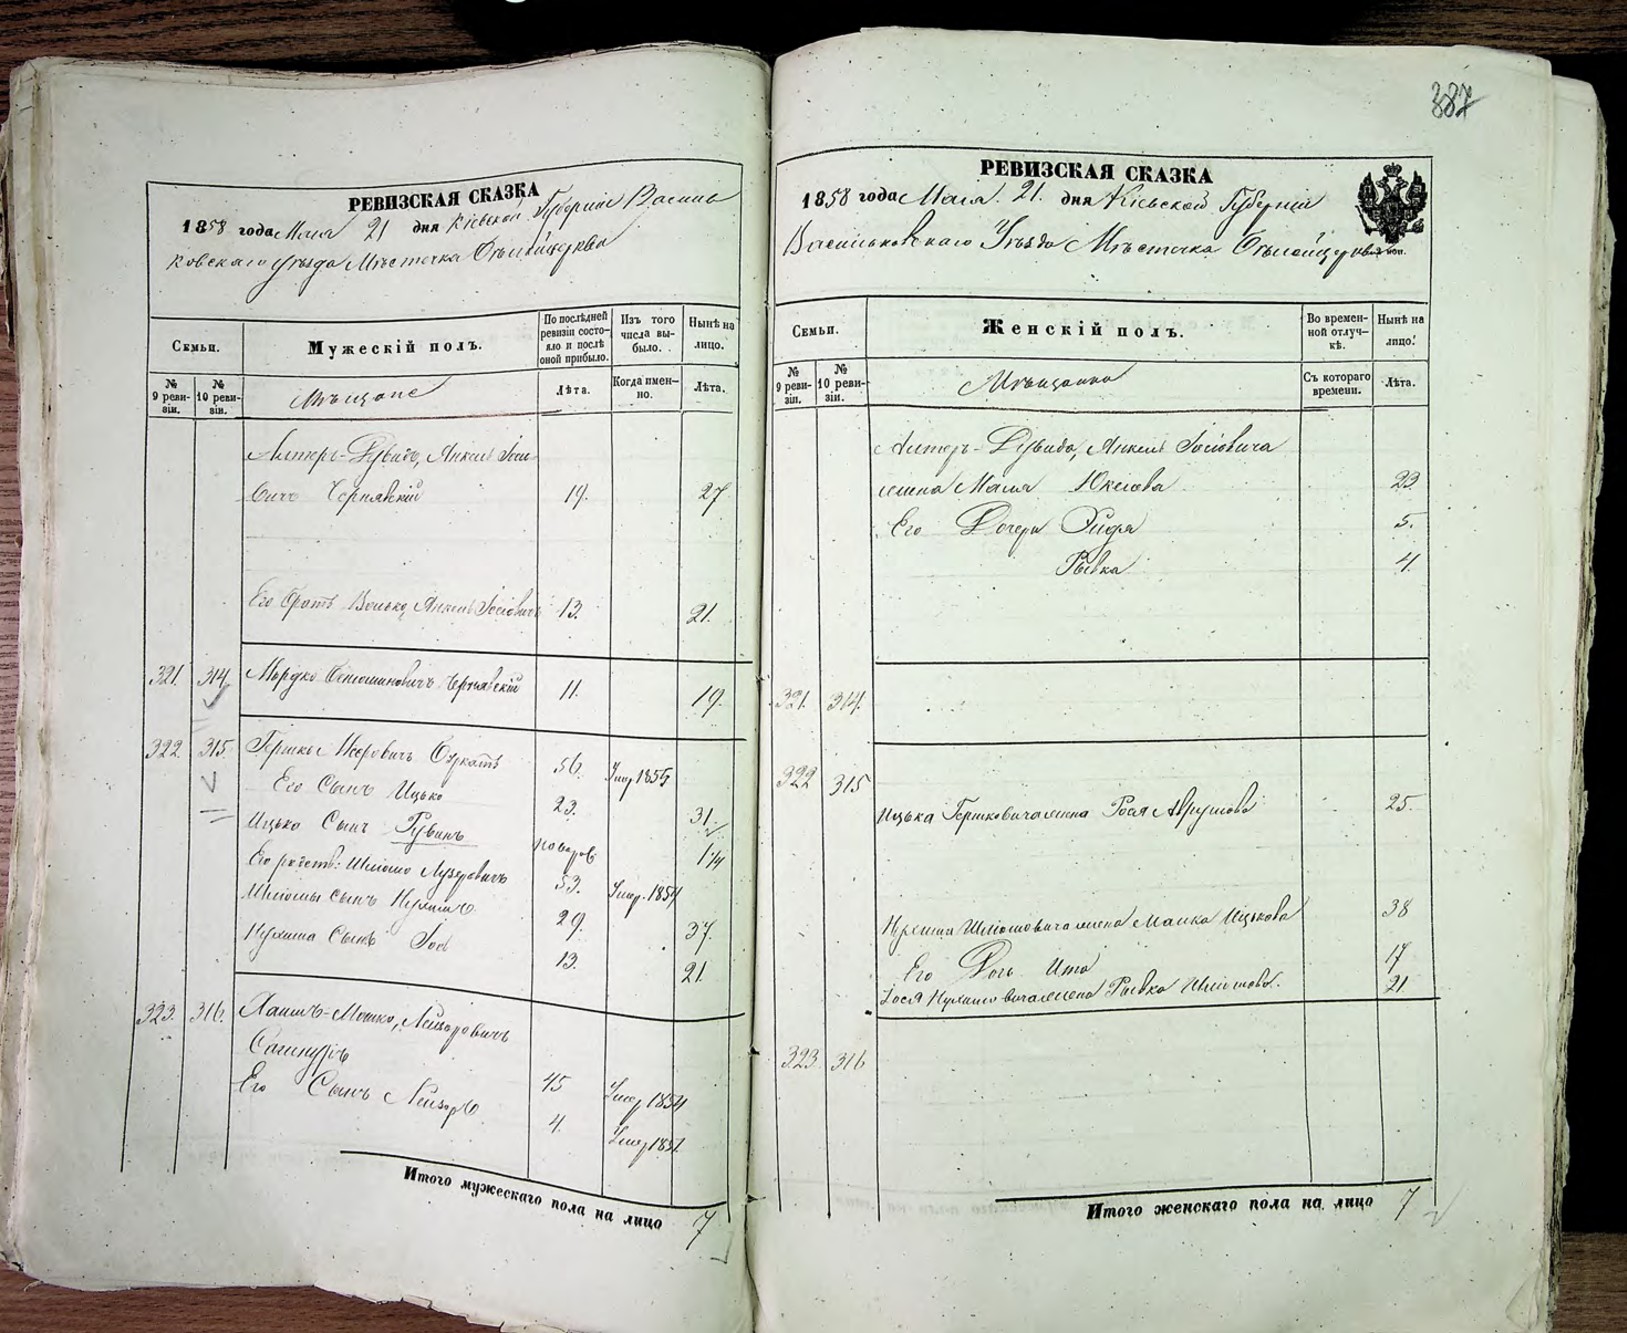 387
РЕВИЗСКАЯ СКАЗКА
1858 года Мая 21 дня Кіевской Губерніи Василь
ковскаго Уѣзда Мѣстечка Бѣлойцеркви
Семьи.
Мужескій полъ.
По послѣдней ревизіи состояло и послѣ оной прибыло.
Изъ того числа выбыло.
Нынѣ на лицо.
№ 9 ревизіи.
№ 10 ревизіи.
Мѣщане
Лѣта.
Когда именно.
Лѣта.
Алтеръ-Дувидъ, Анкель Іосіо-
вичъ Чернявскій 19. 27
Его братъ Волько, Анкель Іосіовичъ 13. 21.
321. 314 Мордко Чернявскій 11. 19.
322 315. Гершко 56. Умер 1855
Его Сынъ Ицько 23. 31.
Ицько Сынъ Рувинъ новорож 1 1/4
Его родств: Шліомо Лузеровичъ 53. Умер. 1854
Шліомы Сынъ Нухимъ 29. 37.
Нухима Сынъ Іось 13. 21.
323. 316. Хаимъ-Мошко, Лейзоровичъ
45 Умер 1854
Его Сынъ Лейзоръ 4. Умер 1851
Итого мужескаго пола на лицо 7
РЕВИЗСКАЯ СКАЗКА
1858 года Мая 21. дня Кіевской Губерніи
Васильковскаго Уѣзда Мѣстечка Бѣлойцеркви
Семьи.
Женскій полъ.
Во временной отлучкѣ.
Нынѣ на лицо.
№ 9 ревизіи.
№ 10 ревизіи.
Мѣщанки
Съ котораго времени.
Лѣта.
Алтеръ-Дувида, Анкель Іосіовича
жена Маля 23
Его Дочери 5.
Рывка 4
321. 314.
322 315
Ицька Гершковича жена Рося 25.
Нухима Шліомовича жена Малка Ицькова 38
Его Дочь Ита 17
Іося Нухимовича жена Рывка Шліомова. 21
323 316
Итого женскаго пола на лицо 7